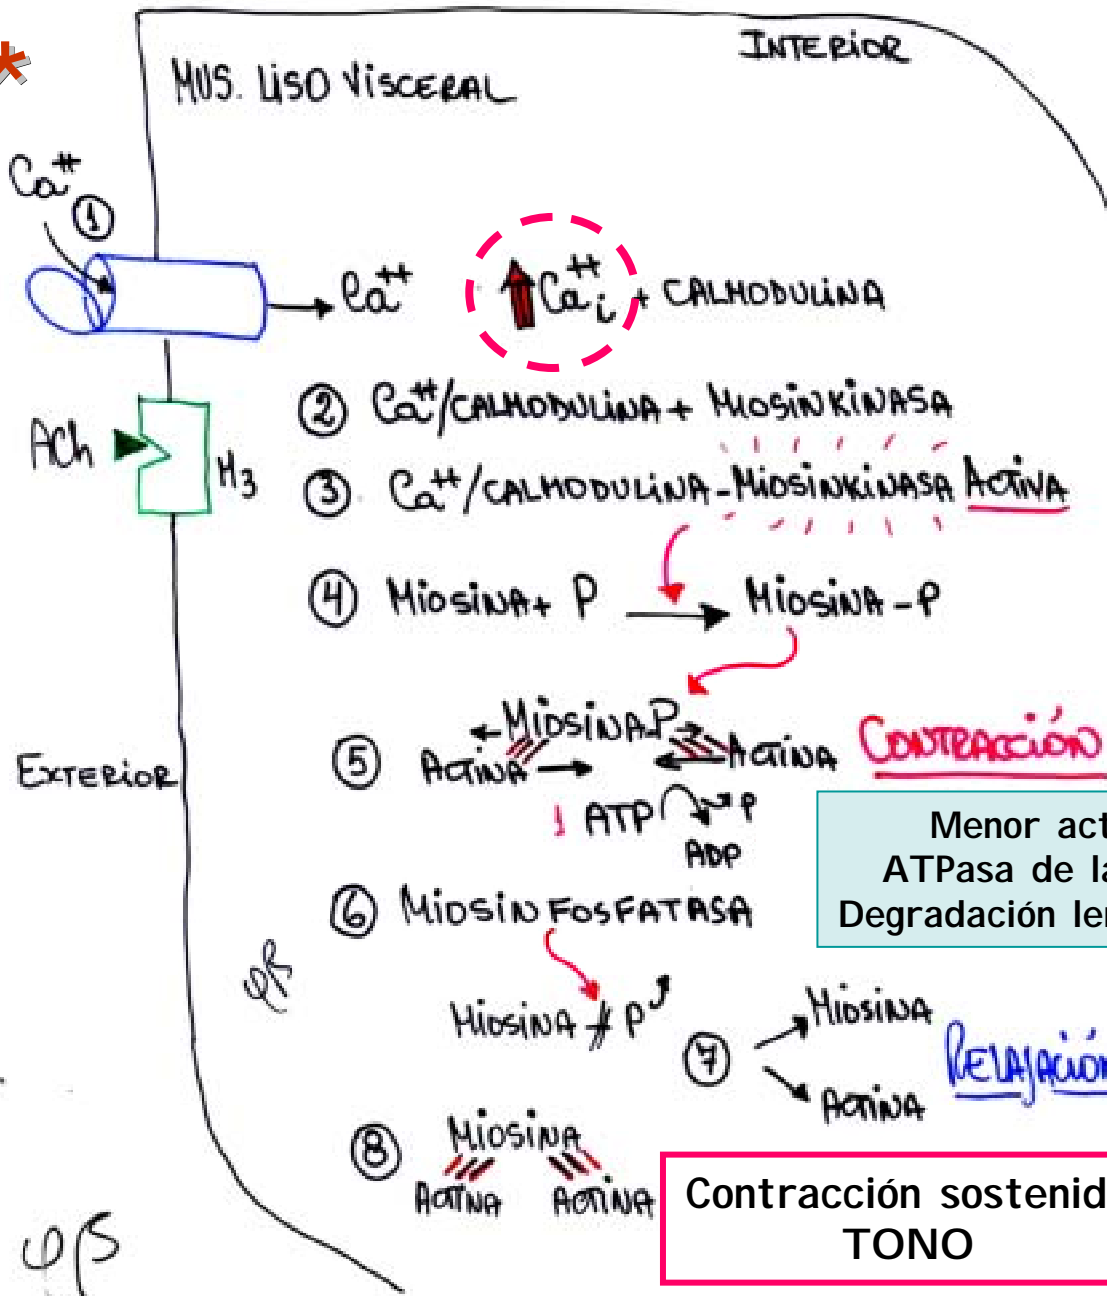 *
INTERIOR
MUS. LISO VISCERAL
Ca++
①
Ca++ ↑Ca++i + CALMODULINA
② Ca++/CALMODULINA + MIOSINKINASA
ACh M3
③ Ca++/CALMODULINA-MIOSINKINASA ACTIVA
④ MIOSINA + P → MIOSINA-P
⑤ ←MIOSINA P→
ACTINA → ← ACTINA CONTRACCIÓN
EXTERIOR
1 ATP P
ADP
Menor act
ATPasa de la
Degradación ler
⑥ MIOSIN FOSFATASA
MIOSINA P
⑦ MIOSINA
ACTINA
RELAJACIÓN
⑧ MIOSINA
ACTINA ACTINA
Contracción sostenid
TONO